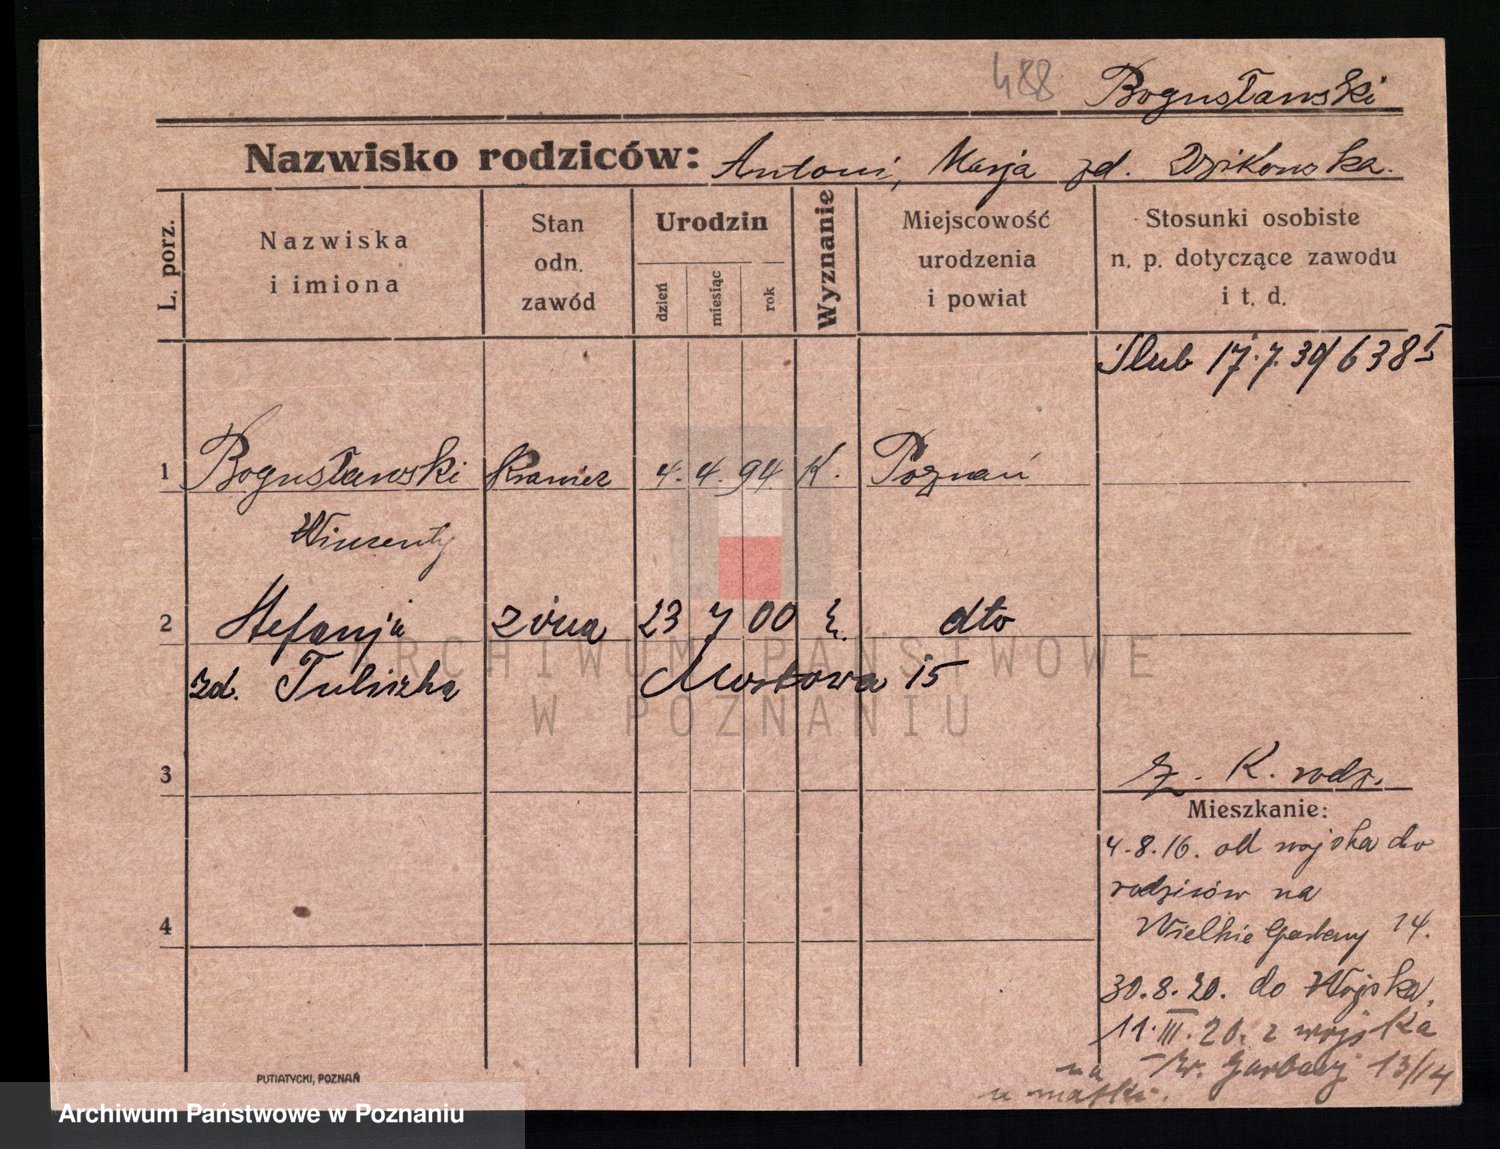 488 Bogusławski
Nazwisko rodziców: Antoni, Marja zd. Dzikowska.
L. porz.
Nazwiska
i imiona
Stan
odn.
zawód
Urodzin
dzień
miesiąc
rok
Wyznanie
Miejscowość
urodzenia
i powiat
Stosunki osobiste
n. p. dotyczące zawodu
i t. d.
Ślub 17.7.30/638 I
1 Bogusławski Krawiec 4. 4. 94 K. Poznań
Wincenty
2 Stefanja żona 23 7 00 k. dto
zd. Tuliszka Mostowa 15
ARCHIWUM PAŃSTWOWE
W POZNANIU
3
z. K. rodz.
Mieszkanie:
4.8.16. od wojska do
rodziców na
4 Wielkie Garbary 14.
30.8.20. do Wojska.
11.III.20. z wojska
na W. Garbary 13/14
u matki.
PUTIATYCKI, POZNAŃ
Archiwum Państwowe w Poznaniu